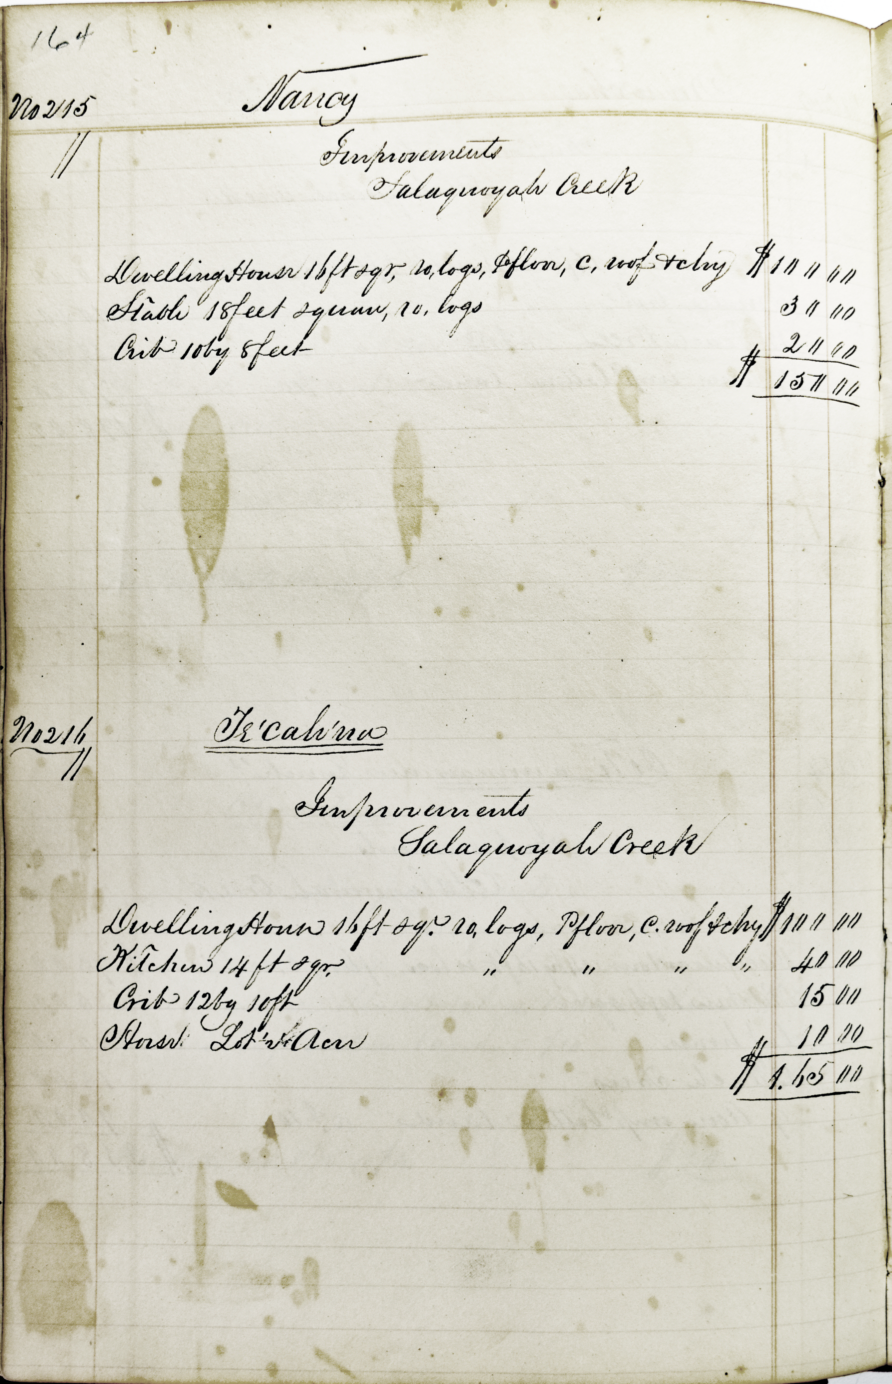 164
No 215 Nancy
"
Improvements
Salaquoyah Creek
Dwelling House 16 ft sqr, ro, logs, P floor, C, roof & chy $ 100 00
Stable 18 feet square, ro. logs 30 00
Crib 10 by 8 feet 20 00
$ 150 00
No 216 Te'cah'na
"
Improvements
Salaquoyah Creek
Dwelling House 16 ft sqr. ro, logs, P floor, C. roof & chy $ 100 00
Kitchen 14 ft sqr. " " " " 40 00
Crib 12 by 10 ft 15 00
Horse Lot Acre 10 00
$ 1.65 00